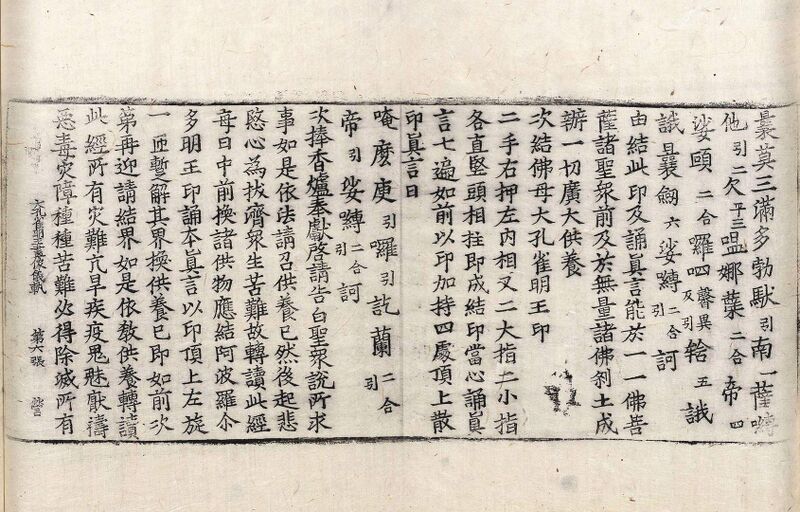 曩莫三滿多勃馱引南一薩嚩
他引二欠平三嗢娜葉二合帝四
娑頗二合囉呬聲異及引給五誐
誐曩劒六娑嚩二合引訶引
由結此印及誦眞言能於一一佛菩
薩諸聖衆前及於無量諸佛刹土成
辦一切廣大供養
次結佛母大孔雀明王印
二手右押左內相叉二大指二小指
各直竪頭相拄即成結印當心誦眞
言七遍如前以印加持四處頂上散
印眞言曰
唵麼庾引囉引訖蘭二合引
帝引娑嚩二合引訶
次捧香爐奉獻啓請告白聖衆說所求
事如是依法請召供養已然後起悲
愍心為拔濟衆生苦難故轉讀此經
每日中前換諸供物應結阿波羅尒
多明王印誦本眞言以印頂上左旋
一匝暫解其界換供養已即如前次
第再迎請結界如是依教供養轉讀
此經所有灾難亢旱疾疫鬼魅厭禱
第六張
惡毒灾障種種苦難必得除滅所有